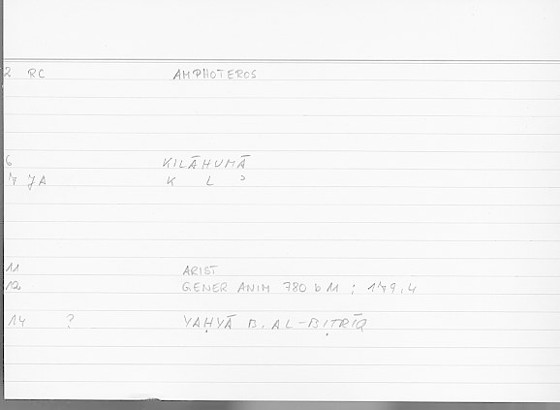 2 RC AMPHOTEROS
6 KILĀHUMĀ
7 JA K L ʾ
11 ARIST
12 GENER ANIM 780 b 11 : 179,4
14 ? YAḤYĀ B. AL-BIṬRĪQ